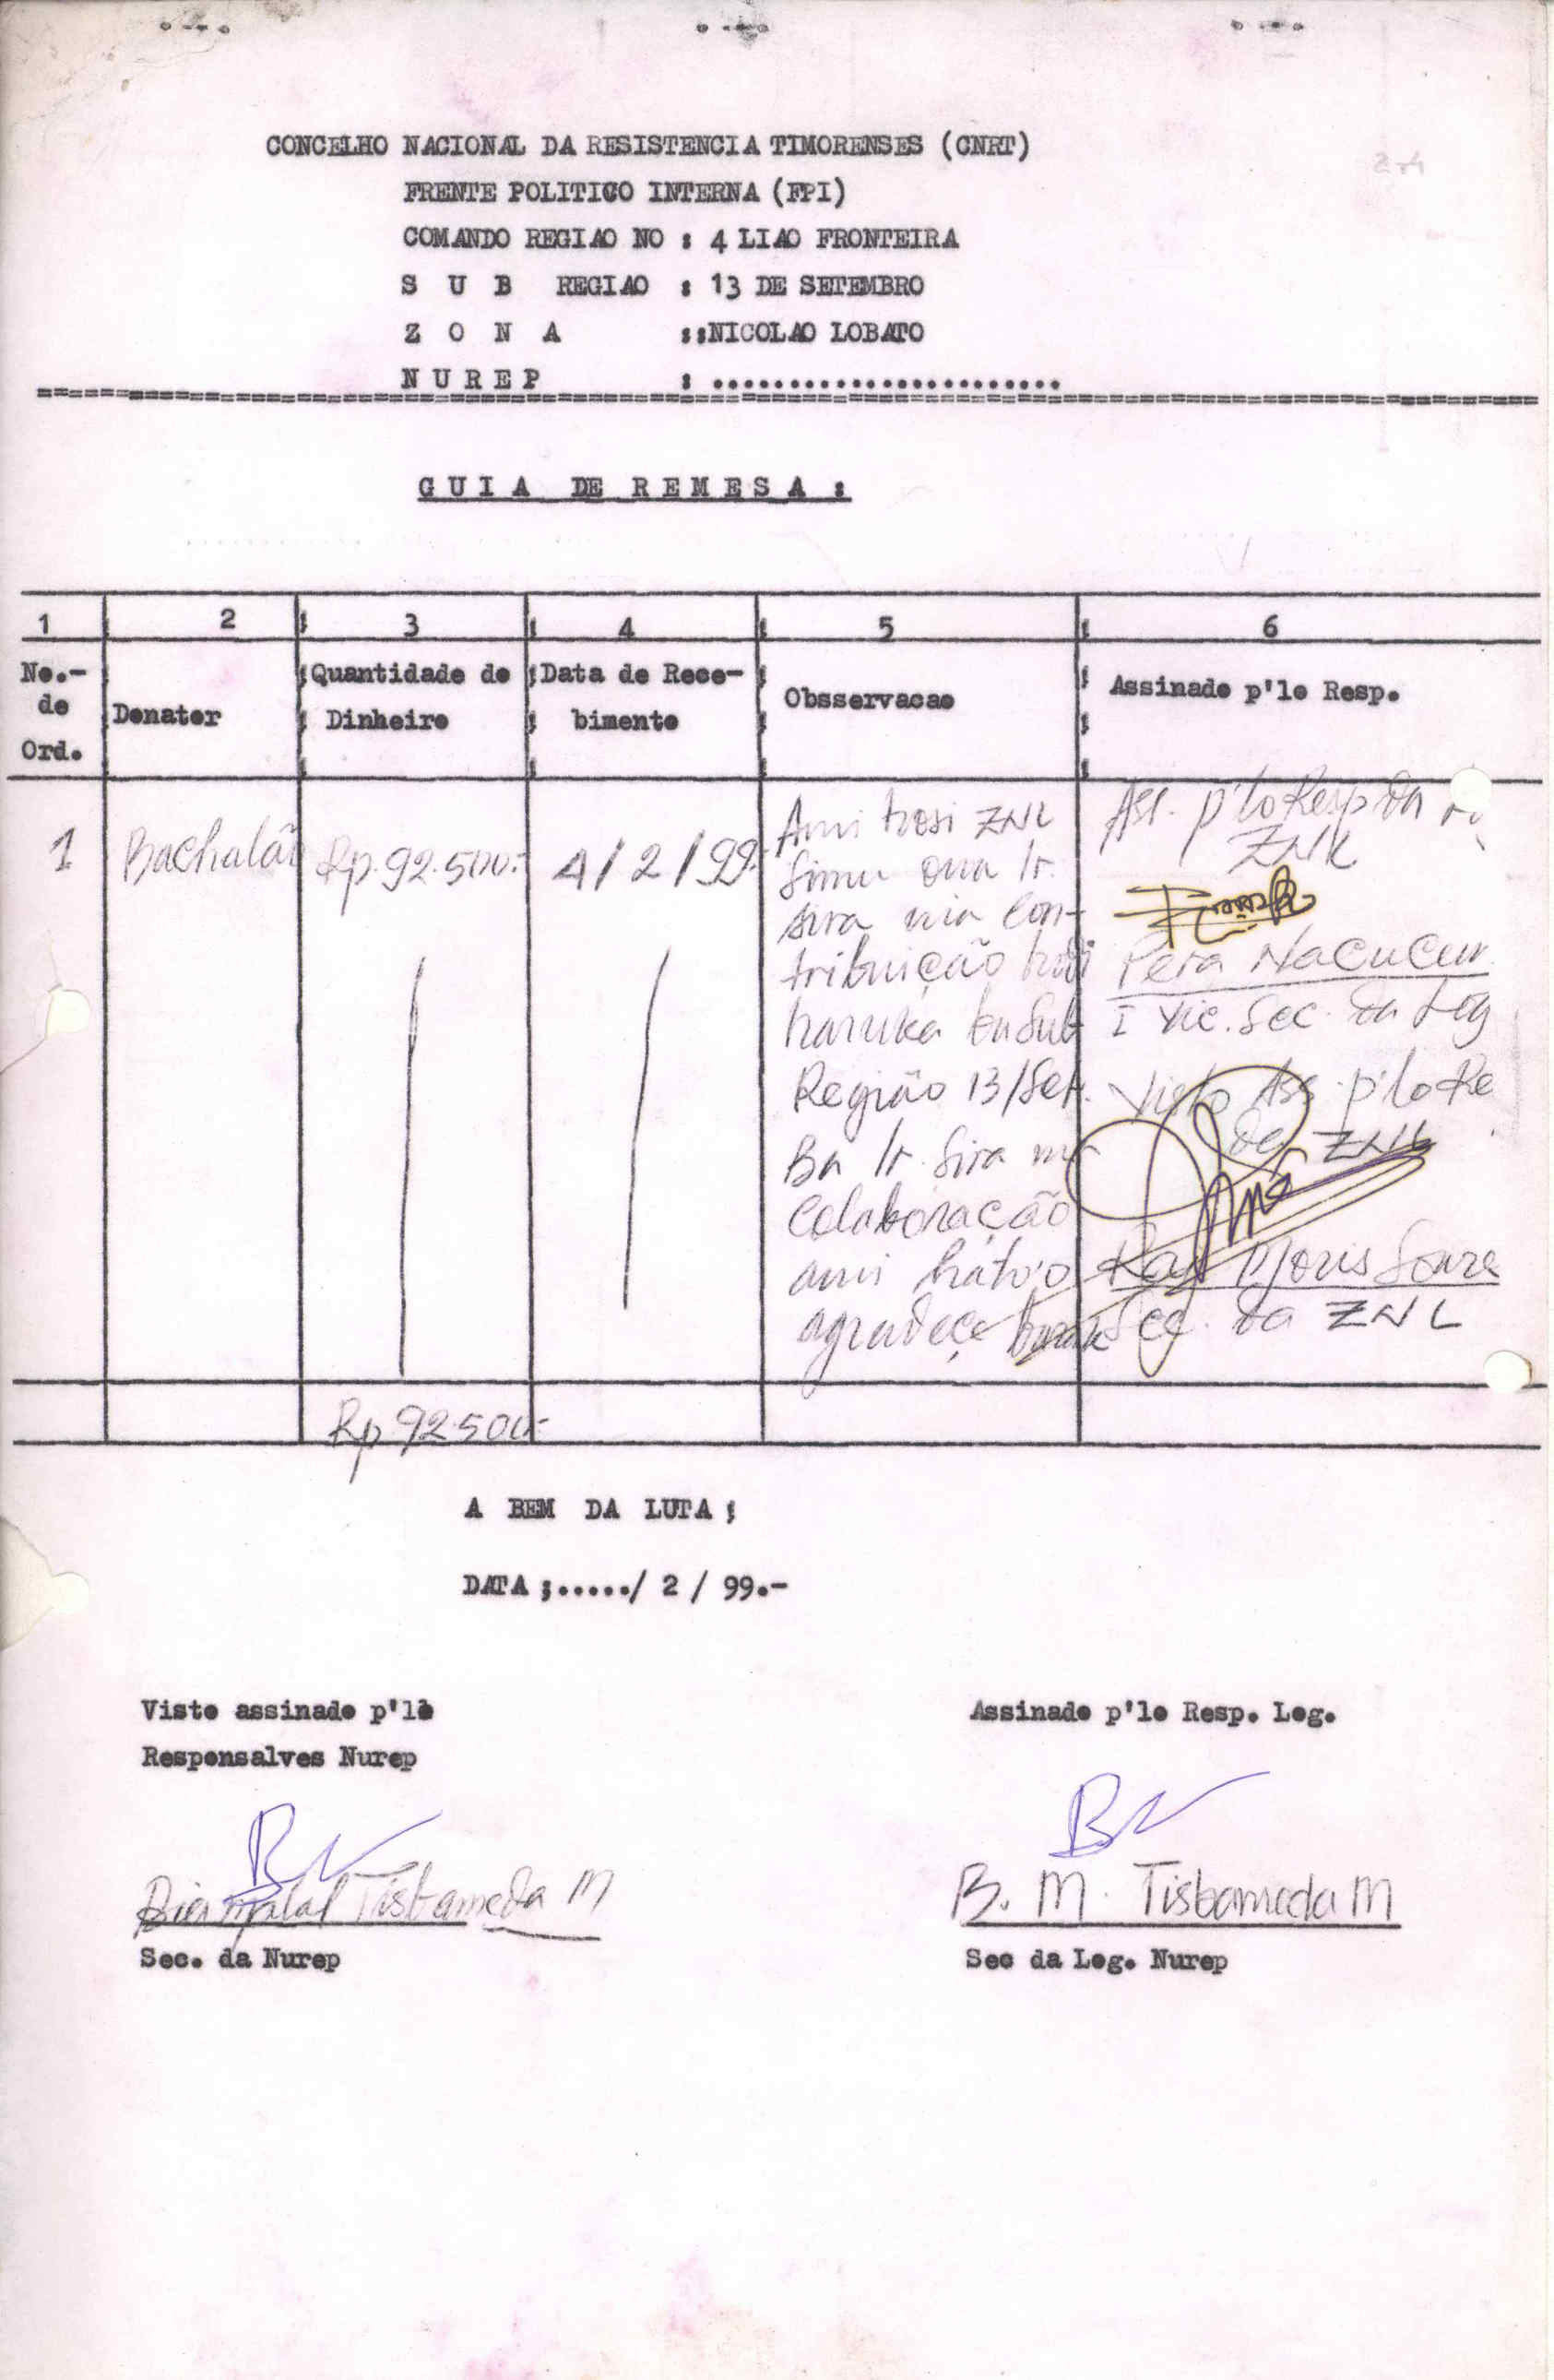 CONCELHO NACIONAL DA RESISTENCIA TIMORENSES (CNRT)
FRENTE POLITICO INTERNA (FPI)
COMANDO REGIAO NO : 4 LIAO FRONTEIRA
S U B REGIAO : 13 DE SETEMBRO
Z O N A ::NICOLAO LOBATO
N U R E P : .......................
G U I A DE R E M E S A :
1 2 3 4 5 6
No.-
de
Ord.
Donator
Quantidade de
Dinheiro
Data de Rece-
bimento
Obsservacao
Assinado p'lo Resp.
1
Rp. 92.500.-
4/2/99.
Ami hosi ZNL
Simu ona Ir.
sira nia Con-
tribuição hodi
haruka ba Sub
Região 13/Set.
Ba Ir. Sira
Colaboração
ami hato'o
agradeçe
Ass. p'lo Resp da
Pera Nacucur
I Vic. Sec. da Log
Visto Ass. p'lo Re
da ZNL
Moris Soure
Sec. da ZNL
Rp 92.500.-
A BEM DA LUTA ;
DATA ;...../ 2 / 99.-
Visto assinado p'lo
Responsalves Nurep
Tisbameda M
Sec. da Nurep
Assinado p'lo Resp. Log.
B. M. Tisbameda M
Sec da Log. Nurep